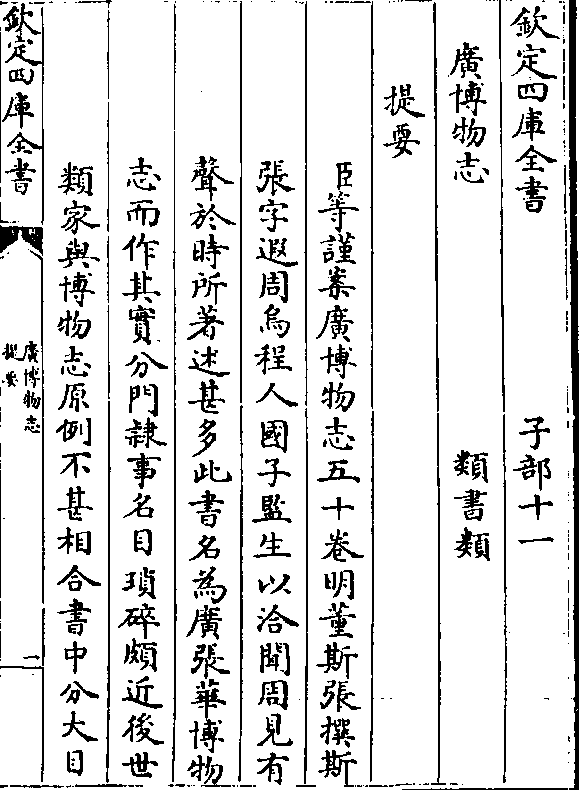 欽定四庫全書 子部十一
廣博物志 類書類
提要
臣等謹案廣博物志五十卷明董斯張撰斯
張字遐周烏程人國子監生以洽聞周見有
聲於時所著述甚多此書名為廣張華博物
志而作其實分門隷事名目瑣碎頗近後世
類家與博物志原例不甚相合書中分大目
欽定四庫全書
廣博物志
提要
一